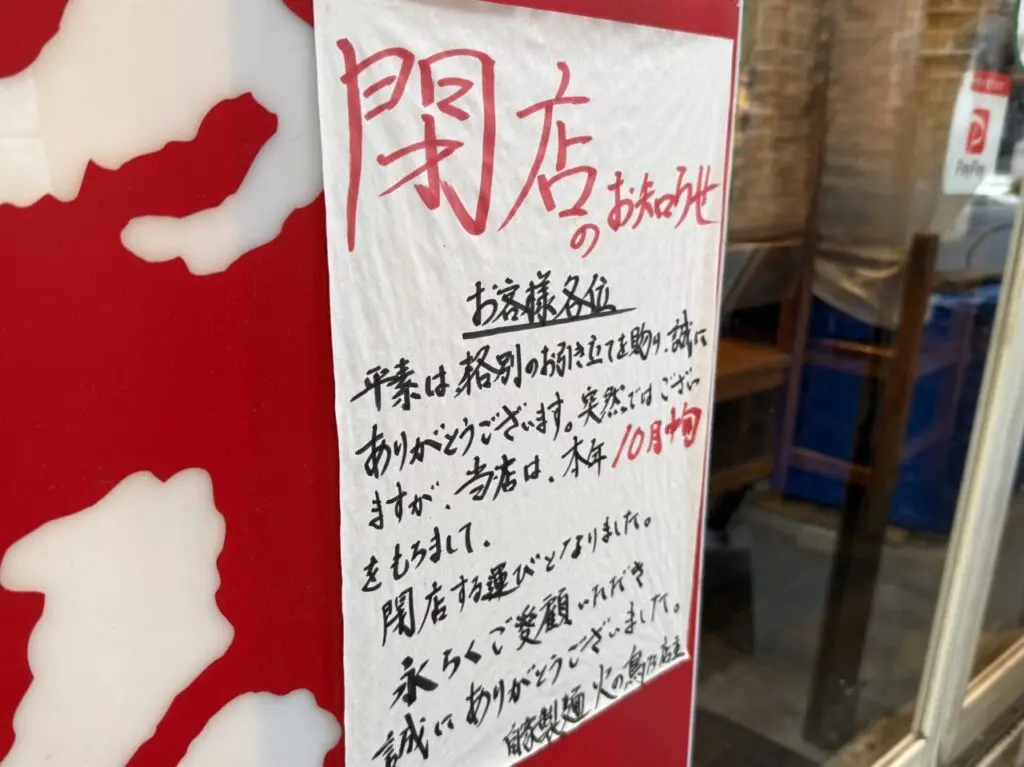 閉店の
お知らせ
お客様各位
平素は格別のお引き立てを賜り、誠に
ありがとうございます。突然ではござい
ますが、当店は、本年10月中旬
をもちまして、
閉店する運びとなりました。
永らくご愛顧いただき
誠にありがとうございました。
自家製麺 火の鳥73店主
PayPay